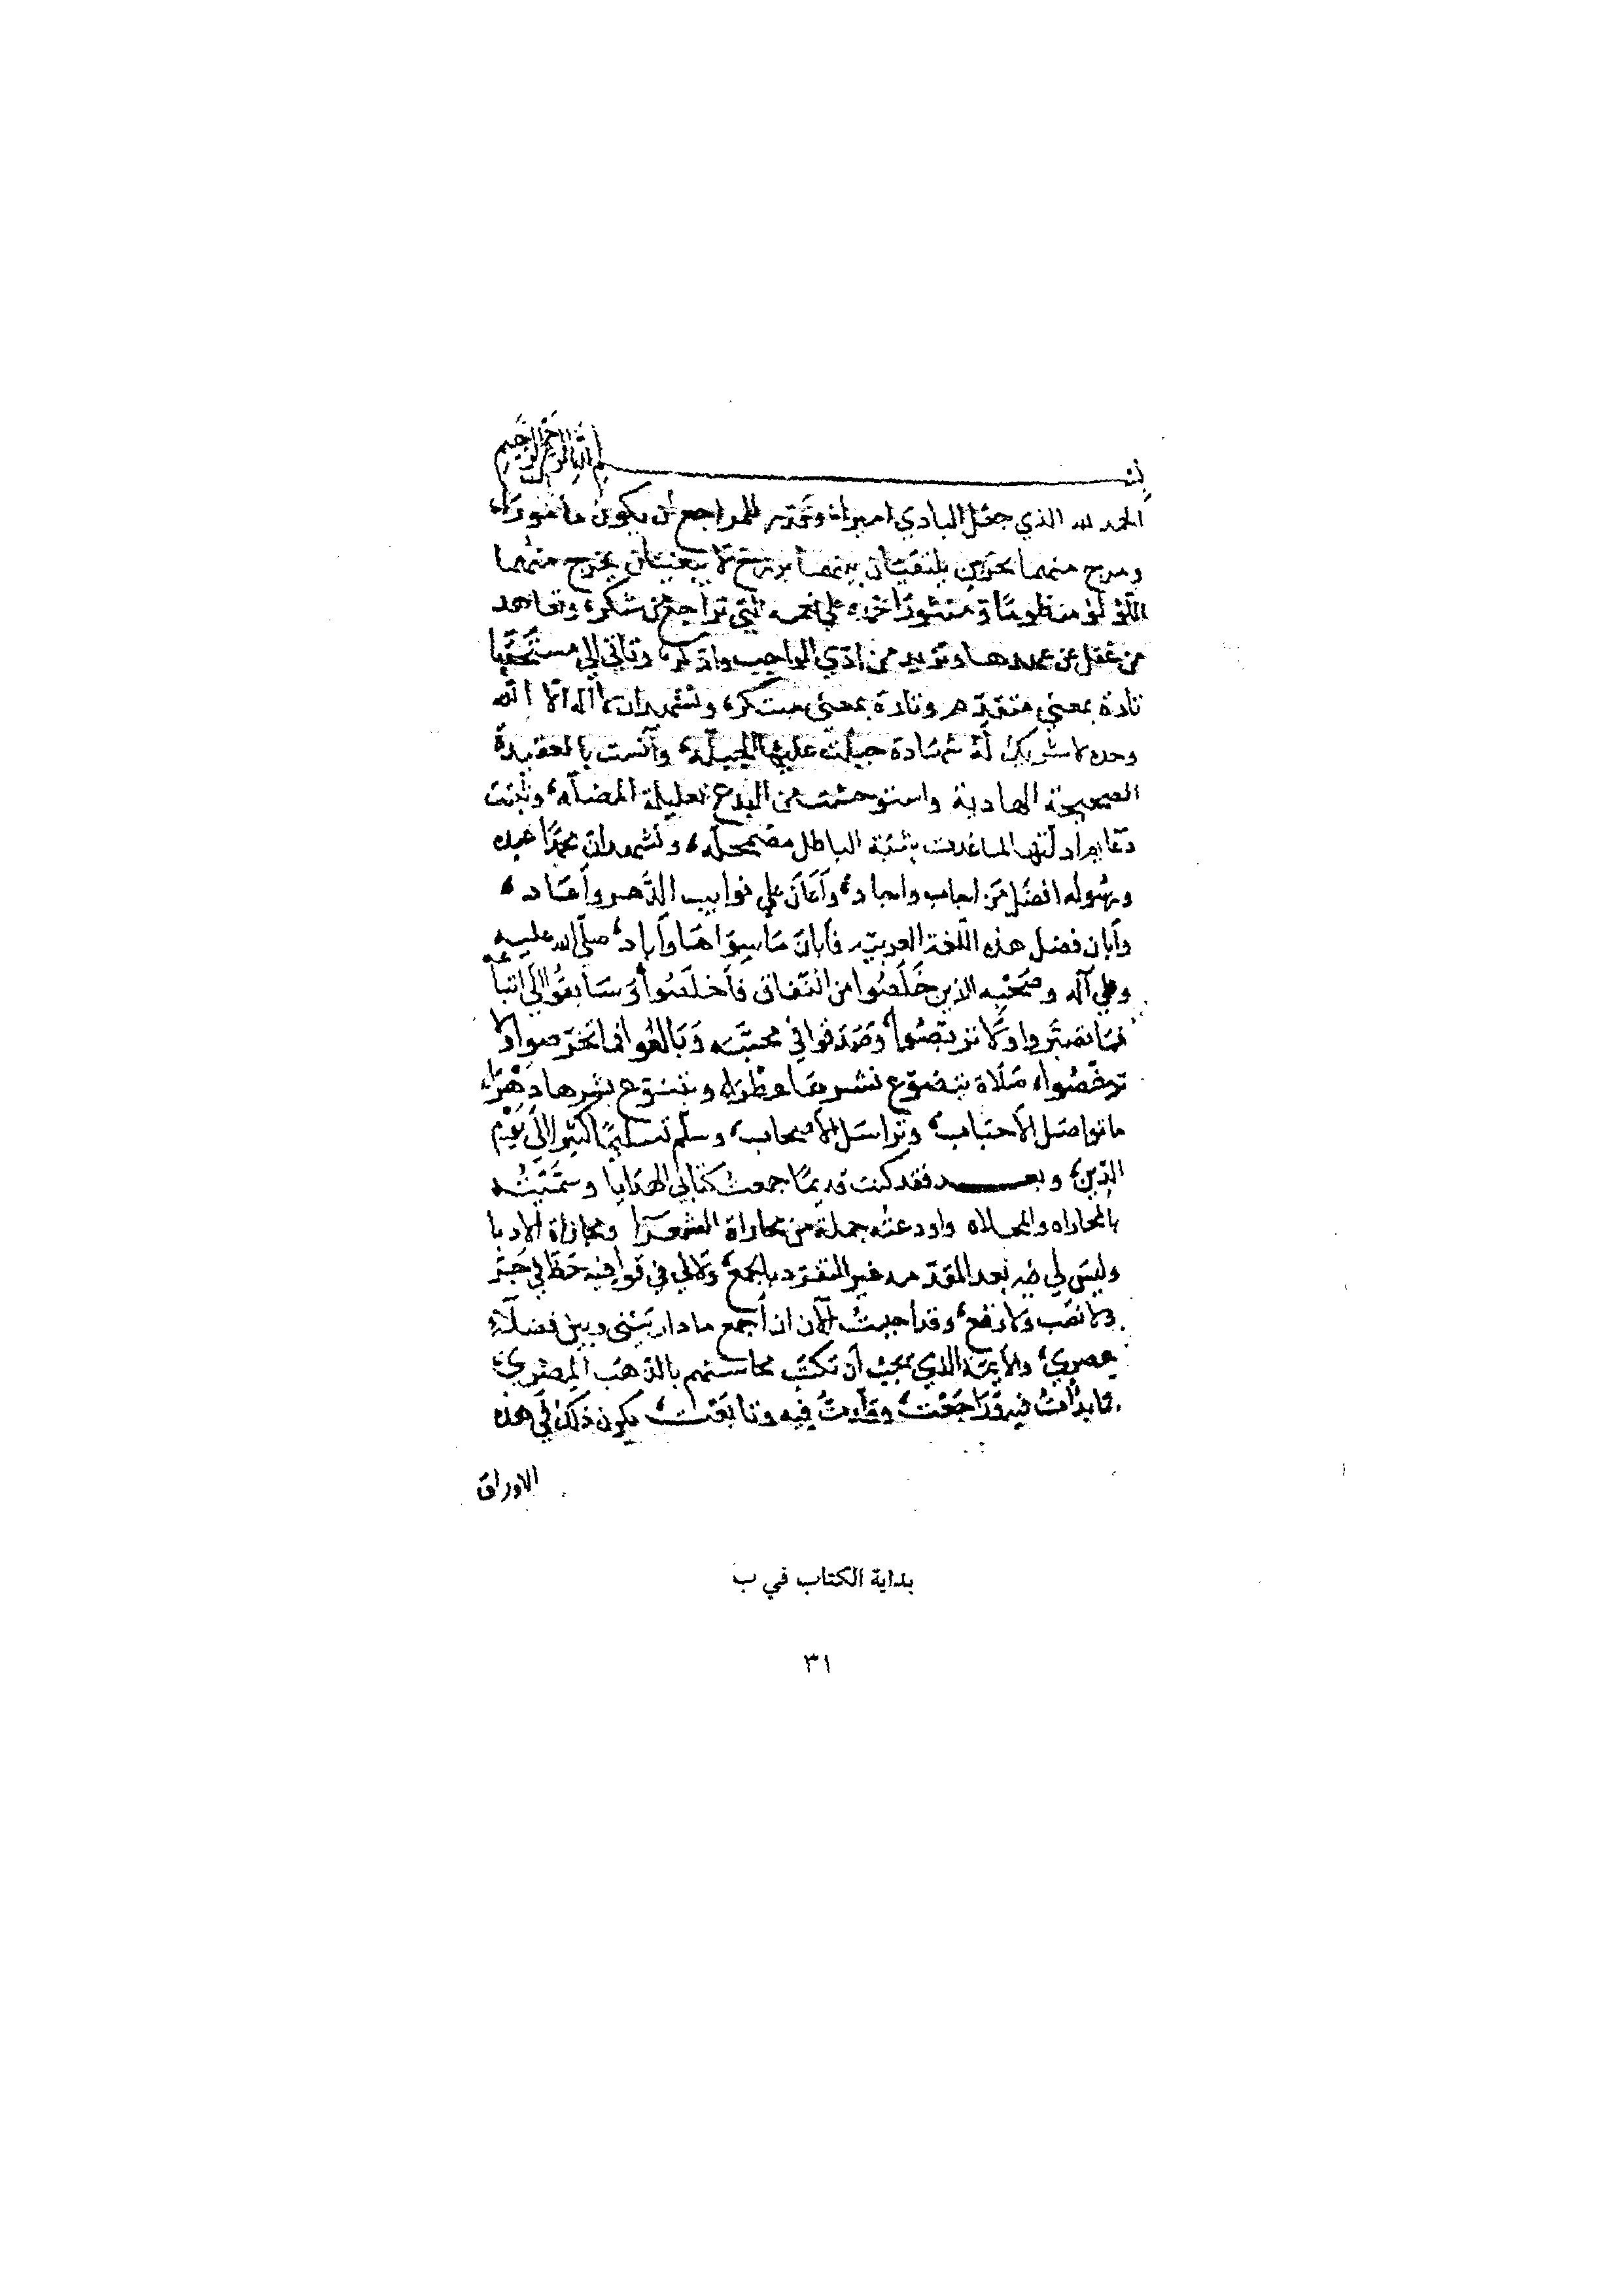 بسم الله الرحمن الرحيم
الحمد لله الذي جعل البادي اميرا وقدر للمراجع أن يكون مأمورا،
ومرج منهما بحرين يلتقيان بينهما برزخ لا يبغيان يخرج منهما
اللؤلؤ منظوما ومنثورا نحمده على نعمه التي تراجع من شكره، وتعاهد
من غفل عن عهدها وتزيد من ادّى الواجب واذكره وتاتي إلى مستحقها
تارة بمعنى متقدم وتارة بمعنى مبتكر، ونشهد ان لا اله الا الله
وحده لا شريك له شهادة جبلت عليها الجبلّه، وآنست بالعقيدة
الصحيحة الهادية واستوحشت من البدع العليلة المضلّه، وثبتت
دعائم ادلتها لما غدت بنية الباطل مضمحلّه، ونشهد ان محمدا عبده
ورسوله افضل من اجاب واجاد، وأعان على نوايب الدّهر وأعاد،
وأبان فضل هذه اللّغة العربيّه فأبان ما سواها وأباد، صلّى الله عليه
وعلى آله وصحبه الذين خلصوا من النّفاق فأخلصوا وسابقوا إلى اتباعه
فما تصبّروا ولا تربّصوا، وصدقوا في محبته وبالغوا فما تخرّصوا ولا
ترخّصوا، صلاة يتضوّع نشرها عطرا، ويتنوّع بشرها دهرا،
ما تواصل الأحباب، وتراسل الأصحاب، وسلّم تسليما كثيرا إلى يوم
الدّين، وبعد فقد كنت قديما جمعت كتابي الهدايا وسمّيته
بالمجاراه والمجازاه واودعته جملة من مجاراة الشعرا ومجازاة الادبا
وليس لي فيه بعد المقدّمه غير التفرّد بالجمع، ولا لي في قوافيه حظ في جر
ولا نصب ولا رفع، وقد احببت الآن ان أجمع ما دار بيني وبين فضلاء
عصري، والأيمة الذي يجب أن تكتب محاسنهم بالذهب المصري،
مما بدأت فيه وراجعت، وقاومت فيه وتابعت، ليكون ذلك في هذه
الاوراق
بداية الكتاب في ب
٣١